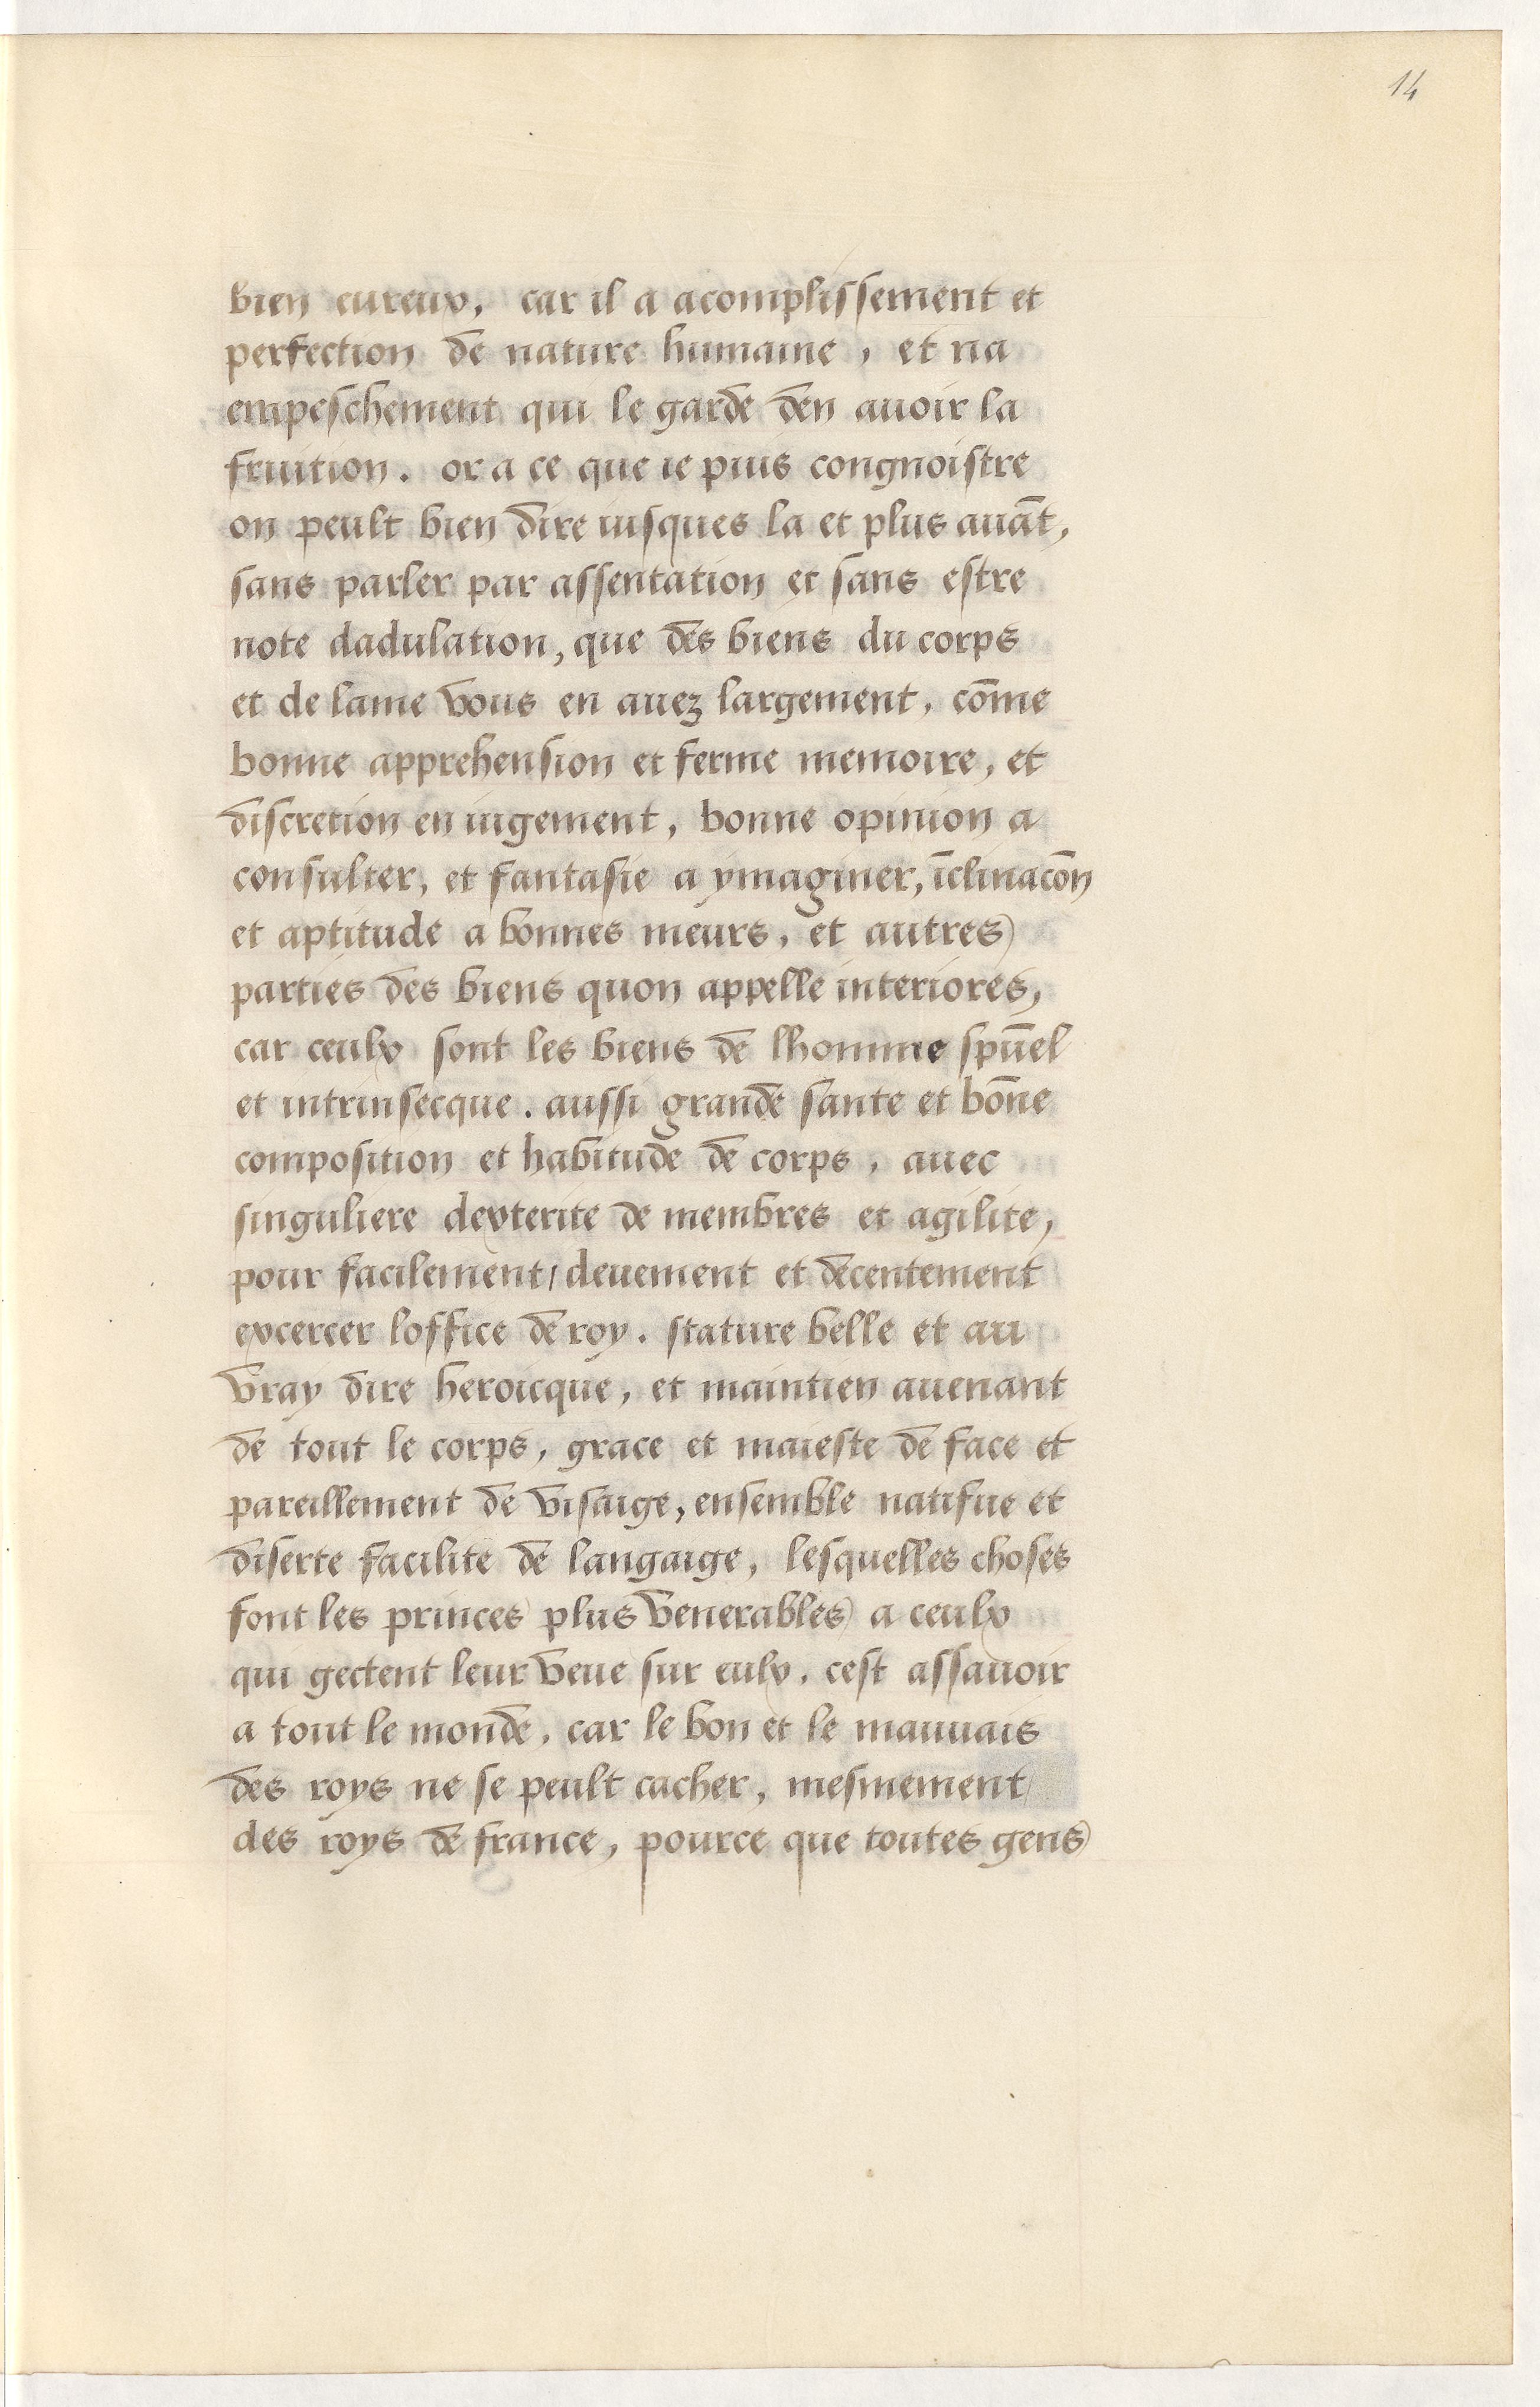 14
bien eureux, car il a acomplissement et
perfection de nature humaine, et na
empeschement qui le garde den auoir la
fruition. or a ce que ie puis congnoistre
on peult bien dire iusques la et plus auāt,
sans parler par assentation et sans estre
note dadulation, que des biens du corps
et de lame vous en auez largement, cōme
bonne apprehension et ferme memoire, et
discretion en iugement, bonne opinion a
consulter, et fantasie a ymaginer, īclinacōn
et aptitude a bonnes meurs, et autres
parties des biens quon appelle interiores,
car ceulx sont les biens de lhomme spūel
et intrinsecque. aussi grande sante et bōne
composition et habitude de corps, auec
singuliere dexterite de membres et agilite,
pour facilement/ deuement et decentement
excercer loffice de roy. stature belle et au
vray dire heroicque, et maintien auenant
de tout le corps, grace et maieste de face et
pareillement de visaige, ensemble natifue et
diserte facilite de langaige, lesquelles choses
font les princes plus venerables a ceulx
qui gectent leur veue sur eulx. cest assauoir
a tout le monde, car le bon et le mauuais
des roys ne se peult cacher, mesmement
des roys de france, pource que toutes gens